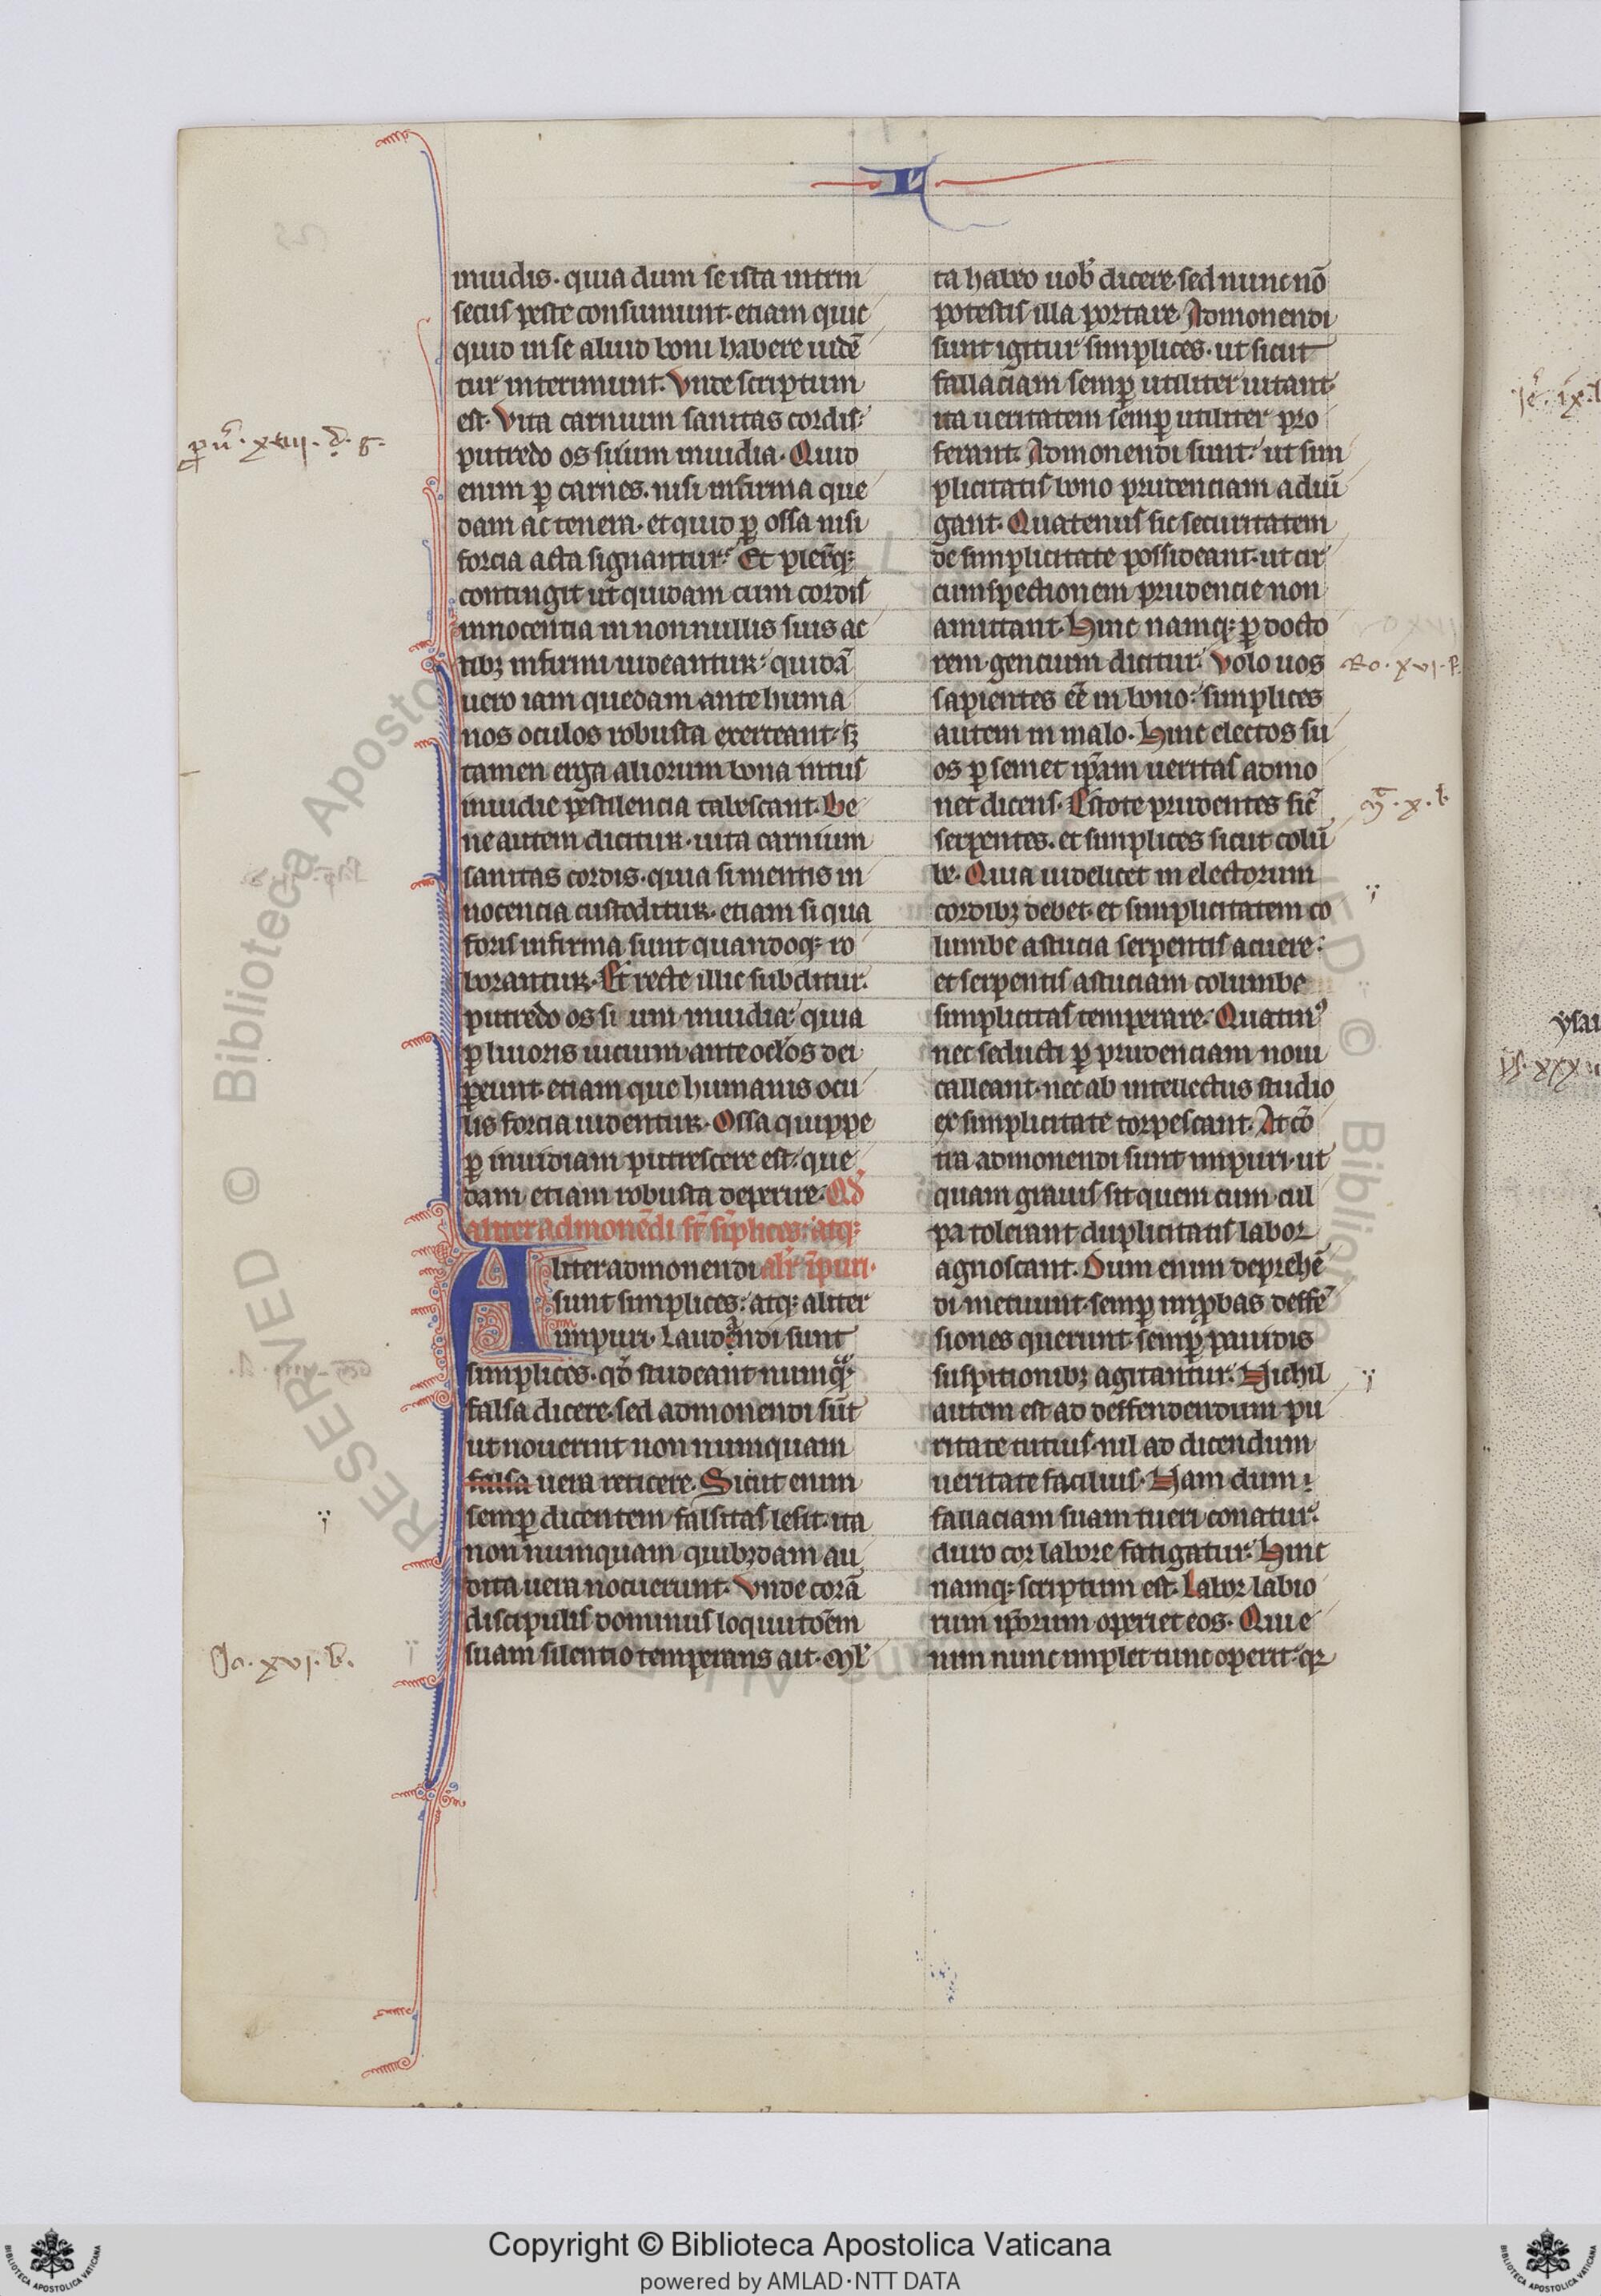 L
inuidis· quia dum se ista intrin
secus peste consumunt· etiam quic
quid in se aliud boni habere uidẽ
tur interimunt. Vnde scriptum
est· Vita carnium sanitas cordis·
putredo ossium inuidia· Quid
enim ꝑ carnes. nisi infirma que
dam ac tenera· et quid ꝑ ossa nisi
forcia acta signantur· Et plerũqꝫ
contingit ut quidam cum cordis
innocentia in non nullis suis ac
tibꝫ infirmi uideantur· quidã
uero iam quedam ante huma
nos oculos robusta exerceant· sꝫ
tamen erga aliorum bona intus
inuidie pestilencia tabescant. Be
ne autem dicitur· uita carnium
sanitas cordis· quia si mentis in
nocencia custoditur· etiam si qua
foris infirma sunt quandoqꝫ ro
borantur· Et recte illic subditur·
putredo ossi um inuidia· quia
ꝑ liuoris uicium ante ocłos dei
ꝑeunt· etiam que humanis ocu
lis forcia uidentur· Ossa quippe
ꝑ inuidiam putrescere est· que
dam etiam robusta deperire· Qđ
aliter admonẽdi sr̃ sĩplices· atqꝫ
Aliter admonendi alr̃ ĩpuri·
sunt simplices· atqꝫ aliter
impuri· Laudandi sunt
simplices· qđ studeant numqᵃ
falsa dicere· sed admonendi sũt
ut nouerint non numquam
falsa uera reticere. Sicut enim
semꝑ dicentem falsitas lesit· ita
non numquam quibꝫdam au
dita uera nocuerunt· Vnde corã
discipulis dominus loquutõem
suam silentio temperans ait· Ml̃
ta habeo uob̃ dicere· sed nunc nõ
potestis illa portare· Admonendi
sunt igitur simplices· ut sicut
fallaciam semꝑ utiliter uitant·
ita ueritatem semꝑ utiliter pro
ferant. Admonendi sunt· ut sim
plicitatis bono prudenciam adiũ
gant· Quatenus sic securitatem
de simplicitate possideant· ut cir
cumspectionem prudencie non
amittant· Hinc namqꝫ ꝑ docto
rem gencium dicitur· Volo uos
sapientes eẽ in bono· simplices
autem in malo· Hinc electos su
os ꝑ semet ip̃am ueritas admo
net dicens· Estote prudentes sic̃
serpentes. et simplices sicut colũ
be· Quia uidelicet in electorum
cordibꝫ debet· et simplicitatem co
lumbe astucia serpentis acuere·
et serpentis astuciam columbe
simplicitas temperare· Quatinꝰ
nec seducti ꝑ prudenciam noui
calleant· nec ab intellectus studio
ex simplicitate torpescant· At cõ
tra admonendi sunt impuri· ut
quam grauis sit quem cum cul
pa tolerant duplicitatis labor
agnoscant. Dum enim deprehẽ
di metuunt· semꝑ improbas deffẽ
siones querunt· semꝑ pauidis
suspitionibꝫ agitantur· Nichil
autem est ad deffendendum pu
ritate tutius· nil ad dicendum
ueritate facilius· Nam dum
fallaciam suam tueri conatur·
duro cor labore fatigatur· Hinc
namqꝫ scriptum est· Labor labio
rum ip̃orum operiet eos· Qui e
nim nunc implet tunc operit· qꝛ
Ro· xvi· f.
Mᵗ· x· b
Io· xvi· b.
RESERVED © Biblioteca Aposto
Copyright © Biblioteca Apostolica Vaticana
powered by AMLAD·NTT DATA
BIBLIOTECA APOSTOLICA VATICANA
BIBLIOTECA APOSTOLICA VATICANA